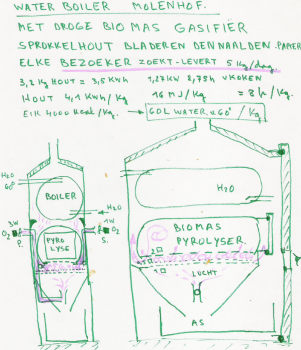 WATER BOILER MOLENHOF.
MET DROGE BIOMAS GASIFIER
SPROKKELHOUT BLADEREN DENNAALDEN. PAPIER
ELKE BEZOEKER ZOEKT-LEVERT 5 kg/dag.
3,2 kg HOUT = 3,5 KWh 1,27kW 2,75h VKOKEN
HOUT 4,1 KWh/Kg 16 MJ/Kg. = 8 h/Kg.
EIK 4000 Kcal/Kg. → 60L WATER v. 60° / Kg.
H2O
60°
BOILER
H2O
H2O
3W
1W
O2
P.
PYRO
LYSE
O2
S.
BIOMAS
PYROLYSER
3
2
1
LUCHT
AS